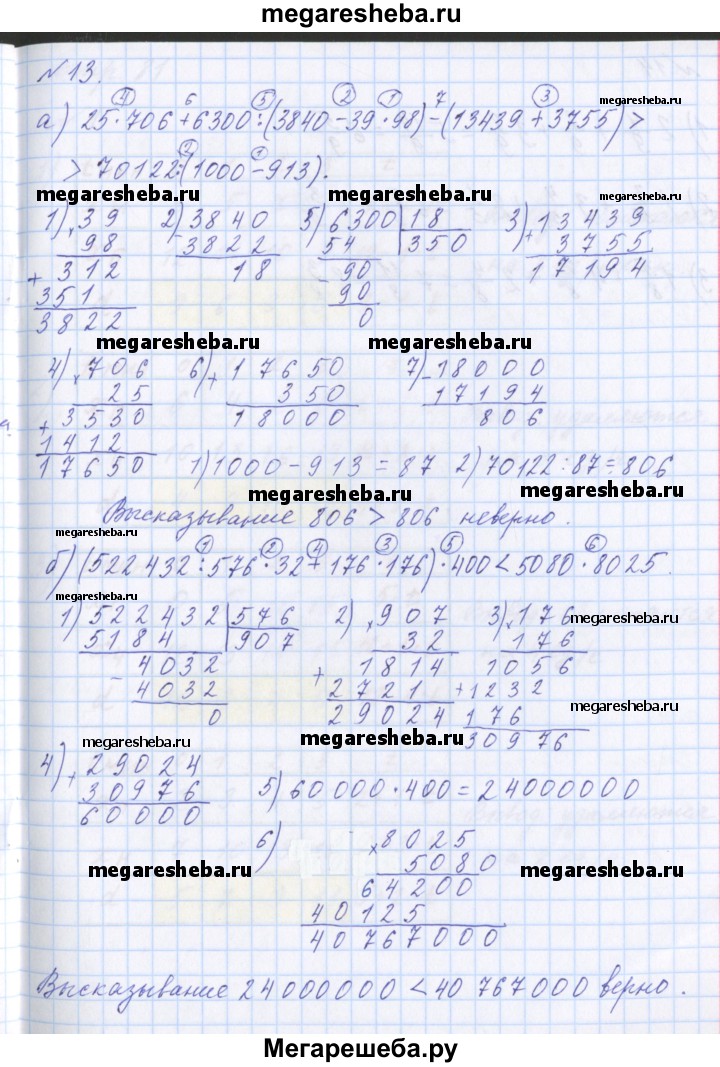 megaresheba.ru
№13.
4 6 5 2 1 7 3
а) 25·706+6300:(3840-39·98)-(13439+3755)>
megaresheba.ru
2 1
> 70122:(1000-913).
megaresheba.ru megaresheba.ru
1) 39 2) 3840 5) 6300 18 3) 13439
× 98 - 3822 54 350 + 3755
+ 312 18 - 90 17194
351 90
3822 0
megaresheba.ru megaresheba.ru
4) 706 6) 17650 7) 18000
× 25 + 350 - 17194
+ 3530 18000 806
1412
17650 1) 1000-913=87 2) 70122:87=806
megaresheba.ru megaresheba.ru
Высказывание 806 > 806 неверно.
megaresheba.ru
1 2 4 3 5 6
б) (522432:576·32+176·176)·400<5080·8025.
1) 522432 576 2) 907 3) 176
megaresheba.ru
5184 907 × 32 × 176
- 4032 + 1814 1056
4032 2721 + 1232
0 29024 176
megaresheba.ru
30976
megaresheba.ru megaresheba.ru
4) 29024
+ 30976 5) 60000·400=24000000
60000
6) 8025
× 5080
megaresheba.ru megaresheba.ru
64200
40125
40767000
Высказывание 24000000 < 40 767000 верно.
Мегарешеба.ру